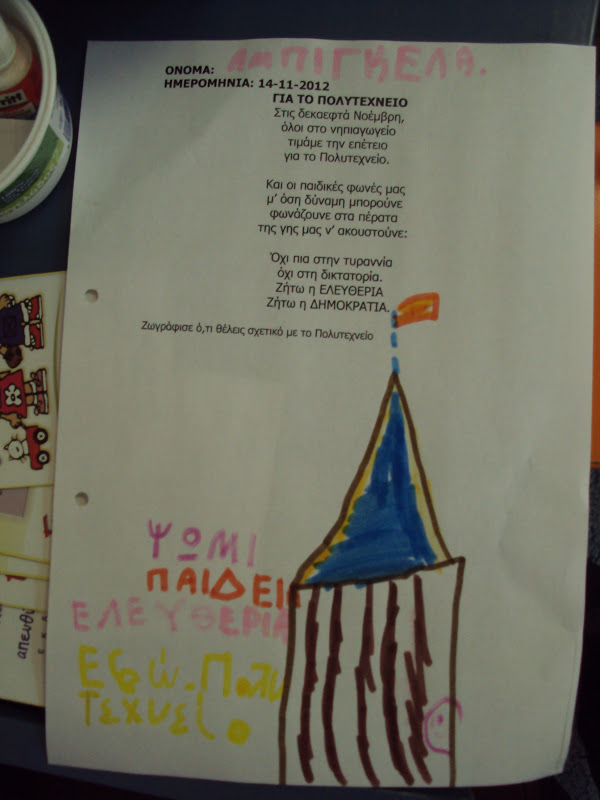 ΟΝΟΜΑ: ΑΜΠΙΓΚΕΛΑ.
ΗΜΕΡΟΜΗΝΙΑ: 14-11-2012
ΓΙΑ ΤΟ ΠΟΛΥΤΕΧΝΕΙΟ
Στις δεκαεφτά Νοέμβρη,
όλοι στο νηπιαγωγείο
τιμάμε την επέτειο
για το Πολυτεχνείο.
Και οι παιδικές φωνές μας
μ' όση δύναμη μπορούνε
φωνάζουνε στα πέρατα
της γης μας ν' ακουστούνε:
Όχι πια στην τυραννία
όχι στη δικτατορία.
Ζήτω η ΕΛΕΥΘΕΡΙΑ
Ζήτω η ΔΗΜΟΚΡΑΤΙΑ.
Ζωγράφισε ό,τι θέλεις σχετικό με το Πολυτεχνείο
ΨΩΜΙ
ΠΑΙΔΕΙΑ
ΕΛΕΥΘΕΡΙΑ
Εδώ. Πολυ
Τεχνεί.
απευθύ